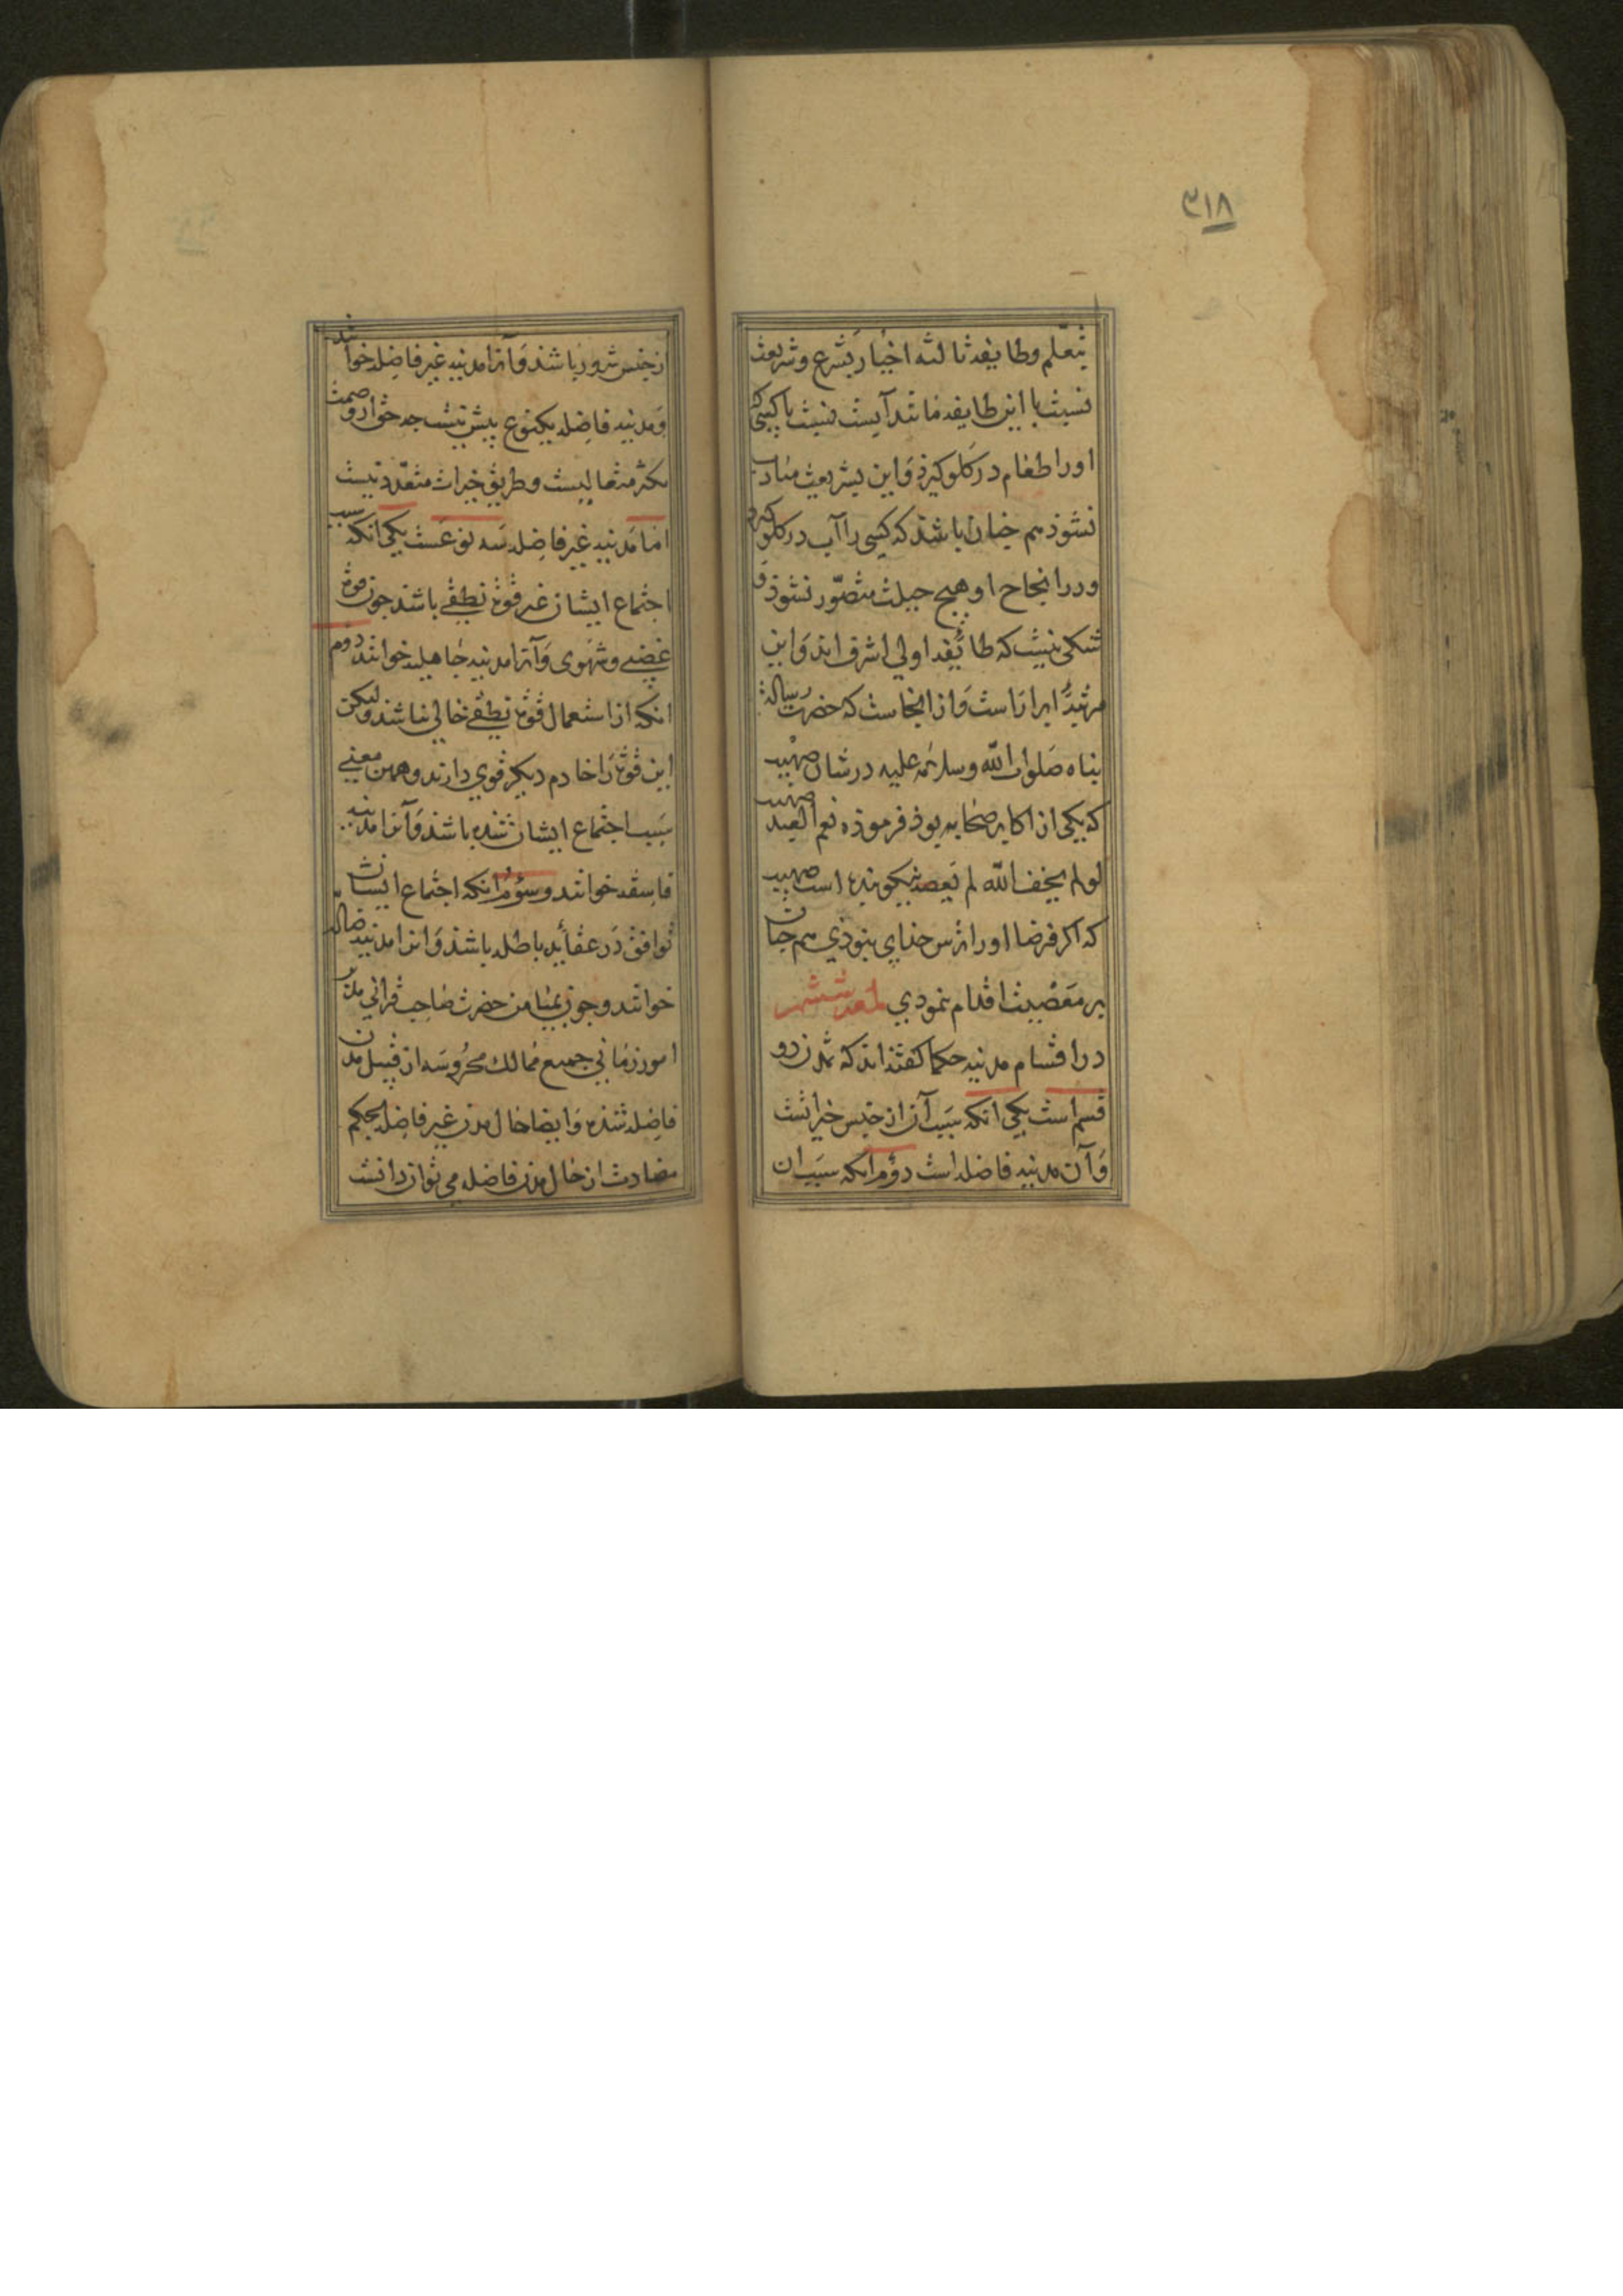 ۳۱۸
بتعلم وطایفه ثالثه اخیار بشرع وشریعت
نسبت با این طایفه مانند آبست نسبت باکسی که
اورا طعام در کلو کیرذ و این بشربت مناد
نشوذ هم جنان باشذ که کسی را آب در کلو کیرد
ودر انجاح او هیچ حیلت متصوّر نشوذ و
شکی نیست که طائفه اولی اشرف اند و این
مرتبه ابراراست و از اینجاست که حضرت رسالة
بناه صلوات الله وسلامه علیه در شان صهیب
که یکی از اکابر صحابه بوذ فرموذه نعم العبد صهیب
لولم یخف الله لم یعصه نیکو بنده است صهیب
که اکر فرضا اورا ترس خذای نبوذی هم جنان
بر معصیت اقدام ننمودی لمعه ششم
در اقسام مدنیه حکما کفته اند که تمدن دو
قسم است یکی انکه سبب آن از جنس خیراتست
وآن مدنیه فاضله است دوم انکه سبب ان
از جنس شرور باشذ و آنرا مدنیه غیر فاضله خوانند
ومدنیه فاضله یکنوع بیش نیست جه حق از وصمت
تکثر متعالیست وطریق خیرات متعدّد نیست
اما مدنیه غیر فاضله سه نوعست یکی انکه سبب
اجتماع ایشان غیر قوت نطقی باشذ جون قوت
غضبی وشهوی وآنرا مدنیه جاهلیه خوانند دوم
انکه از استعمال قوت نطقی خالی نباشند ولیکن
این قوت را خادم دیکر قوی دارند وهمین معنی
سبب اجتماع ایشان شده باشذ وآنرا مدنیه
فاسقه خوانند وسوم انکه اجتماع ایشان
توافق در عقاید باطله باشذ وانرا مدنیه ضالّه
خوانند وجون بمیامن حضرت صاحب قرانی مدّ
امور زمانی جمیع ممالک محروسه از قبیل مدن
فاضله شذه وایضا حال مدن غیر فاضله بحکم
مضادت از حال مدن فاضله می توان دانست